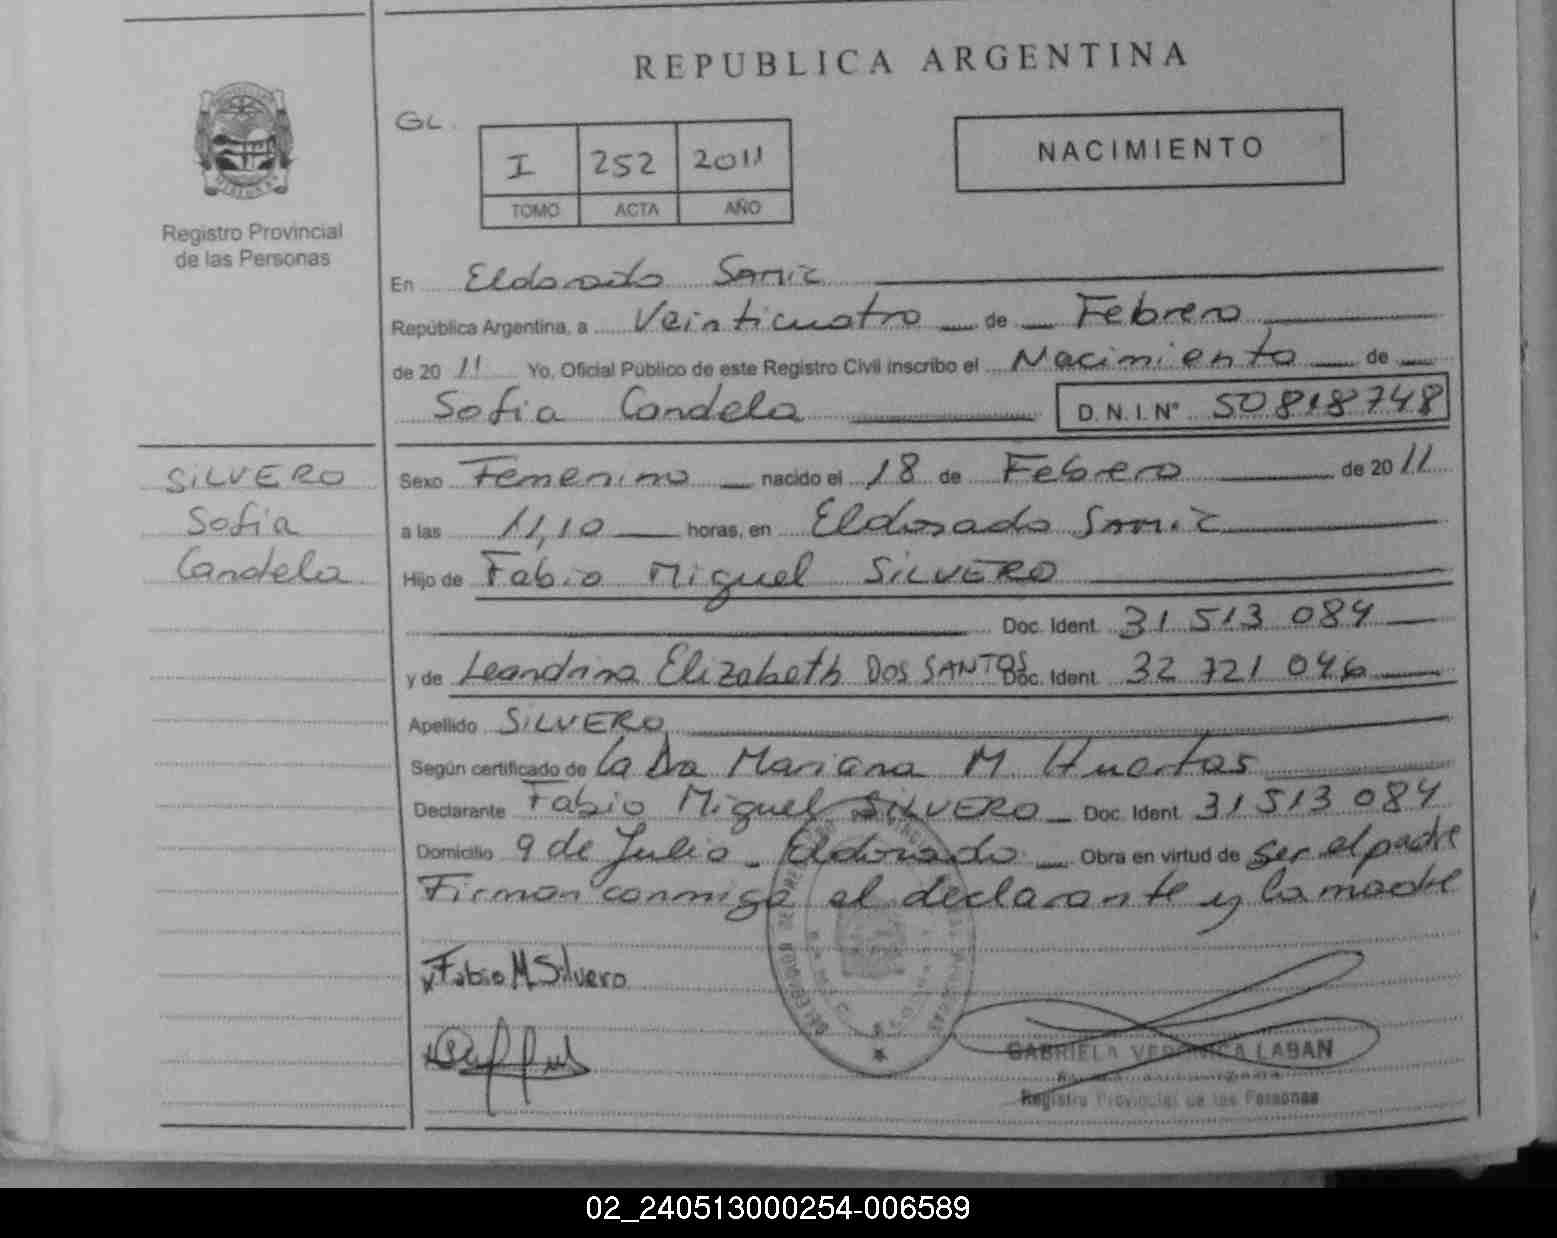 REPUBLICA ARGENTINA
GL.
I 252 2011
TOMO ACTA AÑO
NACIMIENTO
Registro Provincial
de las Personas
En Eldorado Samic
República Argentina, a Veinticuatro de Febrero
de 2011 Yo, Oficial Público de este Registro Civil inscribo el Nacimiento de
Sofia Candela D.N.I. N° 50818748
SILVERO
Sofia
Candela
Sexo Femenino nacido el 18 de Febrero de 2011
a las 11,10 horas, en Eldorado Samic
Hijo de Fabio Miguel SILVERO
Doc. Ident. 31 513 084
y de Leandrina Elizabeth DOS SANTOS Doc. Ident. 32 721 046
Apellido SILVERO
Según certificado de la Dra Mariana M. Huertas
Declarante Fabio Miguel SILVERO Doc. Ident. 31 513 084
Domicilio 9 de Julio - Eldorado Obra en virtud de ser el padre
Firman conmigo el declarante y la madre
x Fabio M Silvero
GABRIELA VERONICA LABAN
Registro Provincial de las Personas
02_240513000254-006589